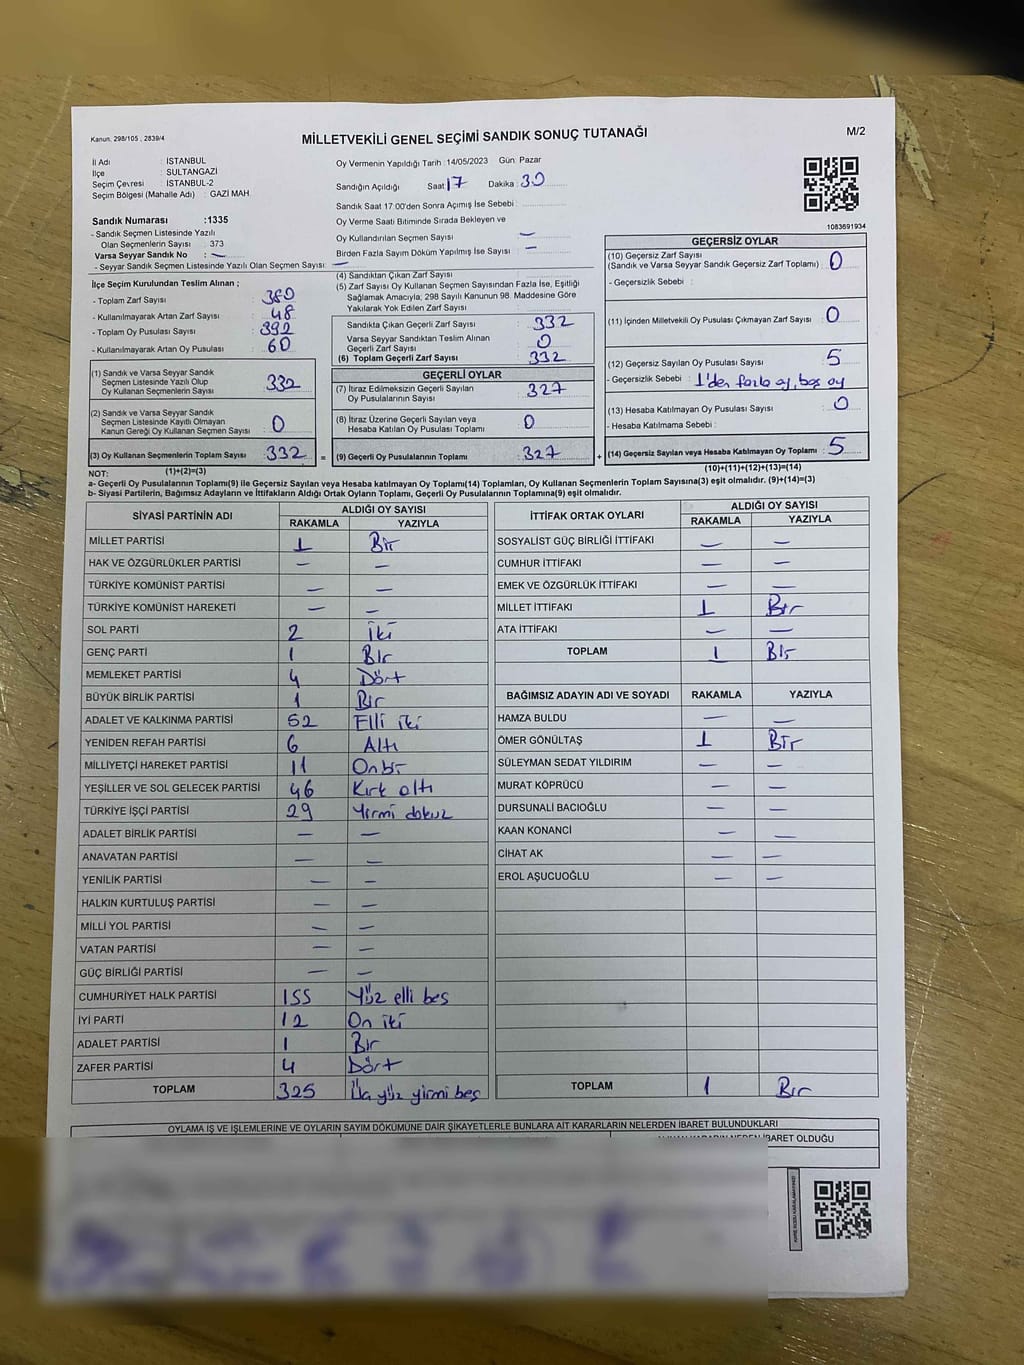 Kanun. 298/105 , 2839/4
MİLLETVEKİLİ GENEL SEÇİMİ SANDIK SONUÇ TUTANAĞI
M/2
İl Adı : İSTANBUL
İlçe : SULTANGAZİ
Seçim Çevresi : İSTANBUL-2
Seçim Bölgesi (Mahalle Adı) : GAZİ MAH.
Oy Vermenin Yapıldığı Tarih :14/05/2023 Gün: Pazar
Sandığın Açıldığı Saat 17 Dakika : 30
Sandık Saat 17:00'den Sonra Açımış İse Sebebi :
Sandık Numarası :1335
- Sandık Seçmen Listesinde Yazılı
Olan Seçmenlerin Sayısı : 373
Varsa Seyyar Sandık No : —
- Seyyar Sandık Seçmen Listesinde Yazılı Olan Seçmen Sayısı: —
Oy Verme Saati Bitiminde Sırada Bekleyen ve
Oy Kullandırılan Seçmen Sayısı —
Birden Fazla Sayım Döküm Yapılmış İse Sayısı : —
1083691934
İlçe Seçim Kurulundan Teslim Alınan ;
- Toplam Zarf Sayısı : 380
- Kullanılmayarak Artan Zarf Sayısı : 48
- Toplam Oy Pusulası Sayısı : 392
- Kullanılmayarak Artan Oy Pusulası : 60
(1) Sandık ve Varsa Seyyar Sandık
Seçmen Listesinde Yazılı Olup
Oy Kullanan Seçmenlerin Sayısı : 332
(2) Sandık ve Varsa Seyyar Sandık
Seçmen Listesinde Kayıtlı Olmayan
Kanun Gereği Oy Kullanan Seçmen Sayısı : 0
(3) Oy Kullanan Seçmenlerin Toplam Sayısı : 332 =
(1)+(2)=(3)
(4) Sandıktan Çıkan Zarf Sayısı :
(5) Zarf Sayısı Oy Kullanan Seçmen Sayısından Fazla İse, Eşitliği
Sağlamak Amacıyla; 298 Sayılı Kanunun 98. Maddesine Göre
Yakılarak Yok Edilen Zarf Sayısı :
Sandıkta Çıkan Geçerli Zarf Sayısı : 332
Varsa Seyyar Sandıktan Teslim Alınan
Geçerli Zarf Sayısı : 0
(6) Toplam Geçerli Zarf Sayısı : 332
GEÇERLİ OYLAR
(7) İtiraz Edilmeksizin Geçerli Sayılan
Oy Pusulalarının Sayısı : 327
(8) İtiraz Üzerine Geçerli Sayılan veya
Hesaba Katılan Oy Pusulası Toplamı : 0
(9) Geçerli Oy Pusulalarının Toplamı : 327 +
GEÇERSİZ OYLAR
(10) Geçersiz Zarf Sayısı
(Sandık ve Varsa Seyyar Sandık Geçersiz Zarf Toplamı) : 0
- Geçersizlik Sebebi :
(11) İçinden Milletvekili Oy Pusulası Çıkmayan Zarf Sayısı : 0
(12) Geçersiz Sayılan Oy Pusulası Sayısı : 5
- Geçersizlik Sebebi : 1'den fazla oy, boş oy
(13) Hesaba Katılmayan Oy Pusulası Sayısı : 0
- Hesaba Katılmama Sebebi :
(14) Geçersiz Sayılan veya Hesaba Katılmayan Oy Toplamı : 5
(10)+(11)+(12)+(13)=(14)
NOT:
a- Geçerli Oy Pusulalarının Toplamı(9) ile Geçersiz Sayılan veya Hesaba Katılmayan Oy Toplamı(14) Toplamları, Oy Kullanan Seçmenlerin Toplam Sayısına(3) eşit olmalıdır. (9)+(14)=(3)
b- Siyasi Partilerin, Bağımsız Adayların ve İttifakların Aldığı Ortak Oyların Toplamı, Geçerli Oy Pusulalarının Toplamına(9) eşit olmalıdır.
SİYASİ PARTİNİN ADI ALDIĞI OY SAYISI
RAKAMLA YAZIYLA
MİLLET PARTİSİ 1 Bir
HAK VE ÖZGÜRLÜKLER PARTİSİ — —
TÜRKİYE KOMÜNİST PARTİSİ — —
TÜRKİYE KOMÜNİST HAREKETİ — —
SOL PARTİ 2 İki
GENÇ PARTİ 1 Bir
MEMLEKET PARTİSİ 4 Dört
BÜYÜK BİRLİK PARTİSİ 1 Bir
ADALET VE KALKINMA PARTİSİ 52 Elli iki
YENİDEN REFAH PARTİSİ 6 Altı
MİLLİYETÇİ HAREKET PARTİSİ 11 Onbir
YEŞİLLER VE SOL GELECEK PARTİSİ 46 Kırk altı
TÜRKİYE İŞÇİ PARTİSİ 29 Yirmi dokuz
ADALET BİRLİK PARTİSİ — —
ANAVATAN PARTİSİ — —
YENİLİK PARTİSİ — —
HALKIN KURTULUŞ PARTİSİ — —
MİLLİ YOL PARTİSİ — —
VATAN PARTİSİ — —
GÜÇ BİRLİĞİ PARTİSİ — —
CUMHURİYET HALK PARTİSİ 155 Yüz elli beş
İYİ PARTİ 12 On iki
ADALET PARTİSİ 1 Bir
ZAFER PARTİSİ 4 Dört
TOPLAM 325 Üç yüz yirmi beş
İTTİFAK ORTAK OYLARI ALDIĞI OY SAYISI
RAKAMLA YAZIYLA
SOSYALİST GÜÇ BİRLİĞİ İTTİFAKI — —
CUMHUR İTTİFAKI — —
EMEK VE ÖZGÜRLÜK İTTİFAKI — —
MİLLET İTTİFAKI 1 Bir
ATA İTTİFAKI — —
TOPLAM 1 Bir
BAĞIMSIZ ADAYIN ADI VE SOYADI RAKAMLA YAZIYLA
HAMZA BULDU — —
ÖMER GÖNÜLTAŞ 1 Bir
SÜLEYMAN SEDAT YILDIRIM — —
MURAT KÖPRÜCÜ — —
DURSUNALİ BACIOĞLU — —
KAAN KONANCİ — —
CİHAT AK — —
EROL AŞUCUOĞLU — —
TOPLAM 1 Bir
OYLAMA İŞ VE İŞLEMLERİNE VE OYLARIN SAYIM DÖKÜMÜNE DAİR ŞİKAYETLERLE BUNLARA AİT KARARLARIN NELERDEN İBARET BULUNDUKLARI
ALINAN KARARIN NEDEN İBARET OLDUĞU